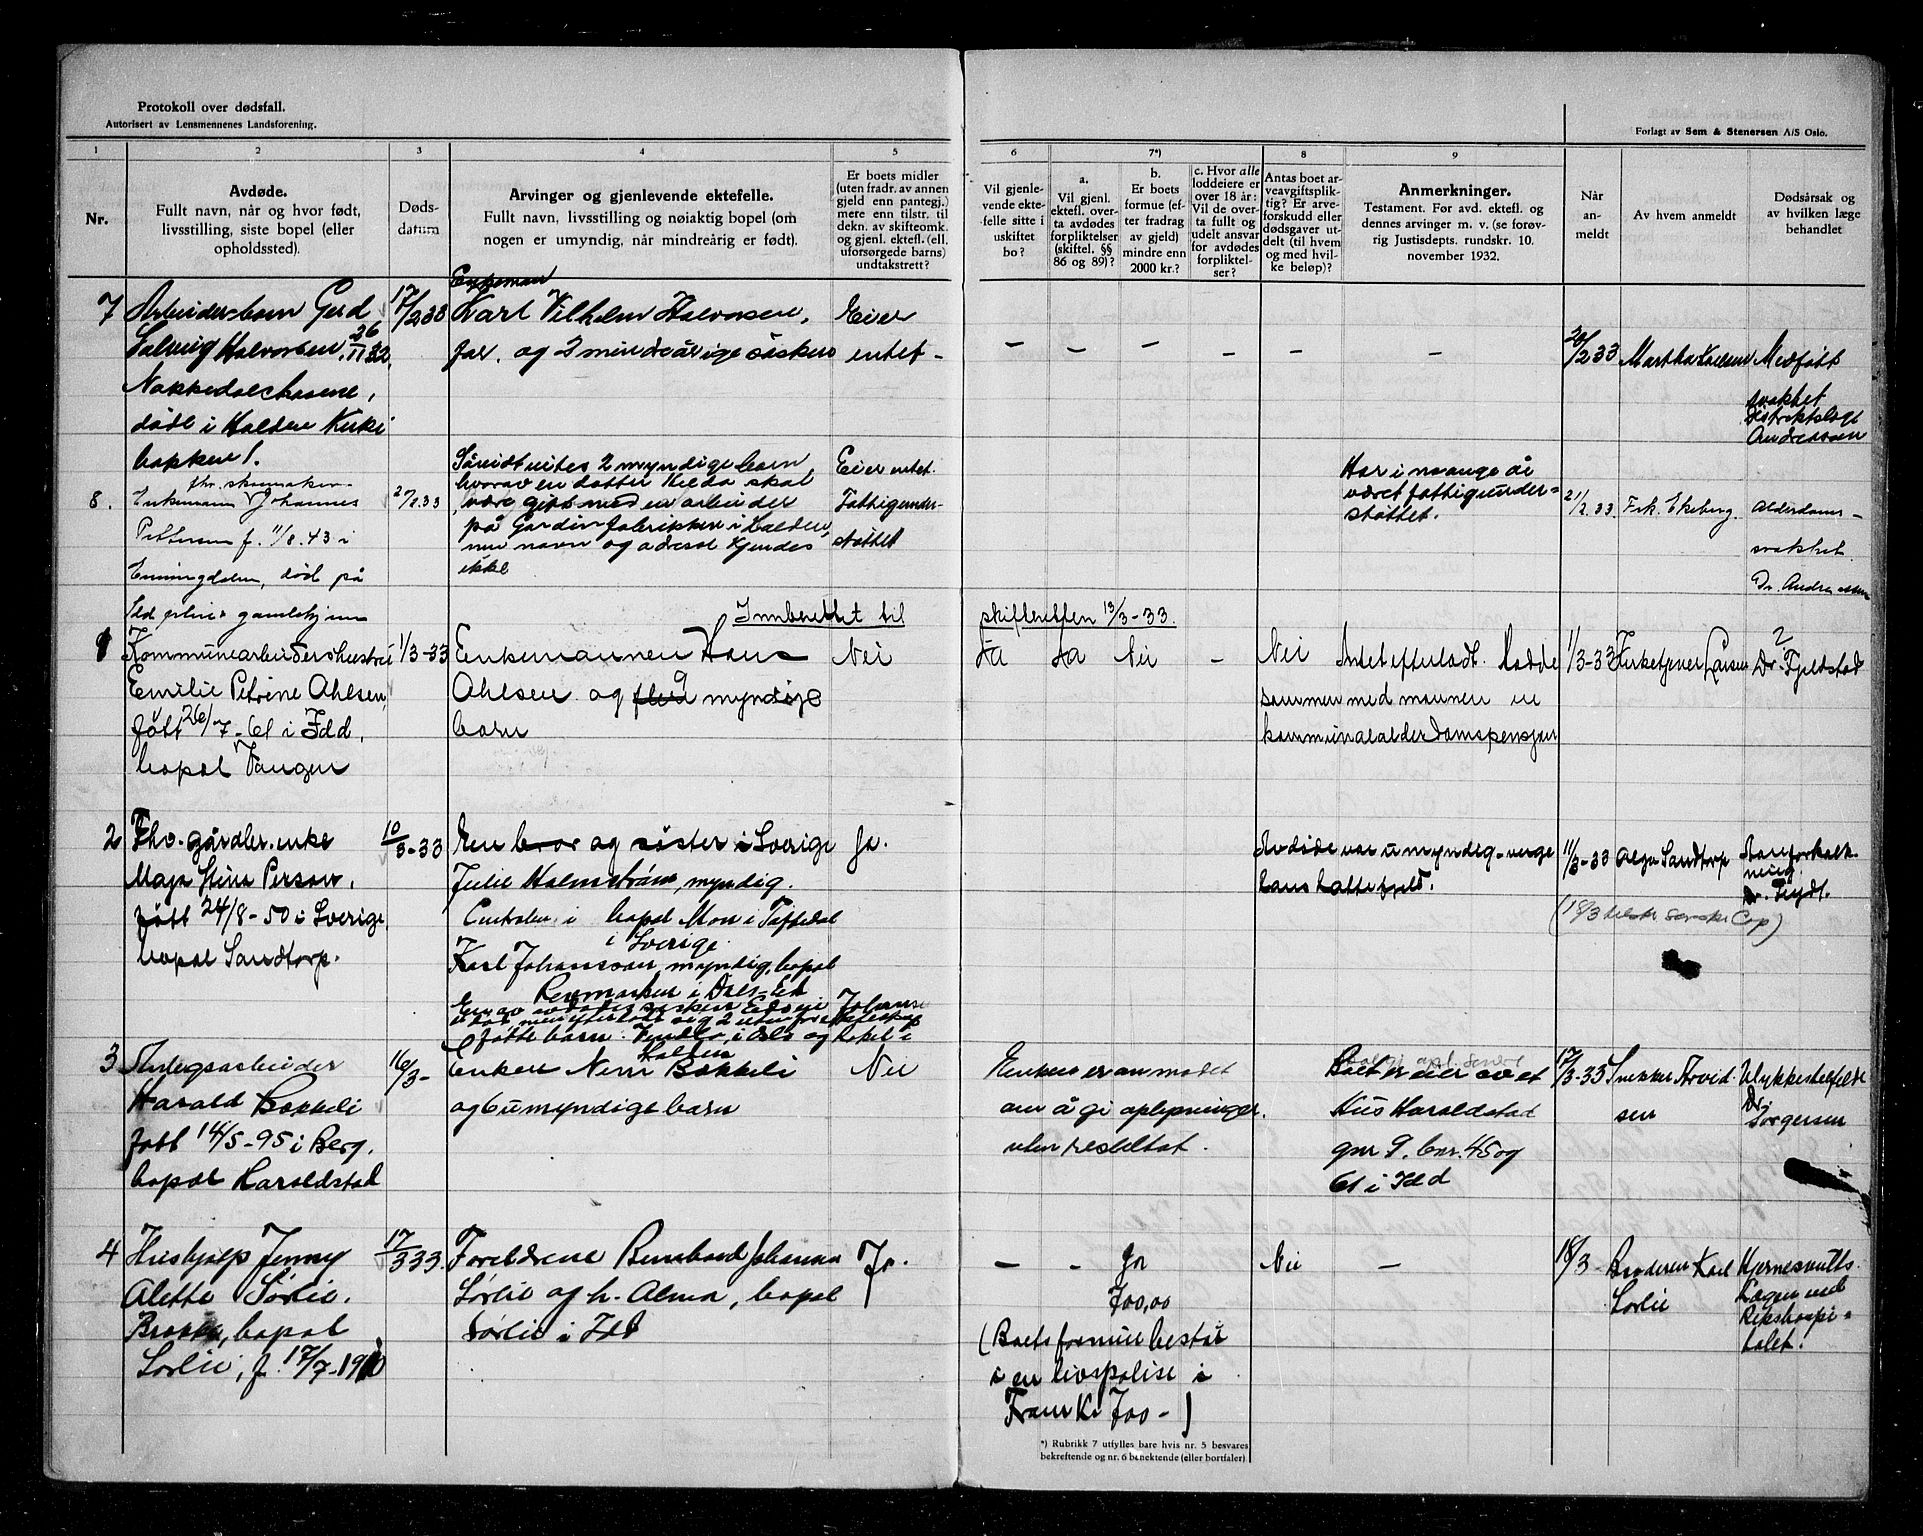 Protokoll over dødsfall.
Autorisert av Lensmennenes Landsforening.
Forlagt av Sem & Stenersen A/S Oslo.
1
2
3
4
5
6
7*)
8
9
Nr.
Avdøde.
Fullt navn, når og hvor født,
livsstilling, siste bopel (eller
opholdssted).
Døds-
datum
Arvinger og gjenlevende ektefelle.
Fullt navn, livsstilling og nøiaktig bopel (om
nogen er umyndig, når mindreårig er født).
Er boets midler
(uten fradr. av annen
gjeld enn pantegj.)
mere enn tilstr. til
dekn. av skifteomk.
og gjenl. ektef. (ell.
uforsørgede barns)
undtakstrett?
Vil gjenle-
vende ekte-
felle sitte i
uskiftet
bo?
a.
Vil gjenl.
ektefl. over-
ta avdødes
forpliktelser
(skiftel. §§
86 og 89)?
b.
Er boets
formue (ef-
ter fradrag
av gjeld)
mindre enn
2000 kr.?
c. Hvor alle
loddeiere er
over 18 år:
Vil de over-
ta fullt og
udelt ansvar
for avdødes
forpliktel-
ser?
Antas boet ar-
veavgiftsplik-
tig? Er arve-
forskudd eller
dødsgaver ut-
delt (til hvem
og med hvil-
ke beløp)?
Anmerkninger.
Testament. Før avd. ektefl. og
dennes arvinger m. v. (se forøv-
rig Justisdepts. rundskr. 10.
november 1932.
Når
an-
meldt
Av hvem anmeldt
Dødsårsak og
av hvilken læge
behandlet
7
Arbeiderbarn Gerd
Solveig Halvorsen, 26/11 32,
Nokkedalshasene,
død i Halden Kirke
bakken 1.
17/2 33
Enkemann
Karl Vilhelm Halvorsen,
far, og 2 mindreårige søsken
Eier
entet -
— — — — — —
20/2 33
Martha Karlsen
Medfødt
svakhet
Distriktslege
Andreassen
8.
fhv. skomaker
Enkemann Johannes
Pettersen f. 11/8. 43 i
Enningdalen, død på
Idd pleie- gamlehjem
27/2. 33
Såvidt vites 2 myndige barn,
hvorav en datter Hilda skal
være gift med en arbeider
på Gardinfabrikken i Halden,
men navn og adresse kjendes
ikke
Eier entet.
Fattigunder-
støttet
Har i mange år
været fattigunder-
støttet.
21/2. 33.
Frk. Ekeberg.
Alderdoms-
svakhet.
Dr. Andreassen
Innberettet til skifteretten 13/3-33.
1
Kommunearbeiderhustru
Emilie Petrine Ahlsen,
født 26/7-61 i Idd,
bopel Tangen
1/3-33
Enkemannen Hans
Ahlsen og flere 9 myndige
barn
Nei
Ja
Ja
Nei
-
Nei
Intet efterladt. Hadde
sammen med mannen en
kommunal alderdomspensjon
1/3-33
Kirketjener Larsen
?
Dr. Fjeldstad
2
Fhv. gårdbr. enke
Maja Stina Person,
født 24/8-50 i Sverige,
bopel Sandtorp.
10/3-33
En bror og søster i Sverige
Julie Holmstrøm, myndig.
bopel Mon i Töftedal
i Sverige.
Karl Johansson, myndig, bopel
i Dals-Ed
Ja.
Avdøde var umyndig - verge
Hans Hattefjeld.
11/3-33
Olga Sandtorp
Åreforkalk-
ning.
Dr. Thydt.
3
Anlegsarbeider
Harald Bakkeli
født 14/5-95 i Berg,
bopel Haroldstad
16/3-
Enken Nem Bakkeli
og 6 umyndige barn
Nei
Enken er anmodet
om å gi oplysninger.
uten resultat.
Boet er eier av et
Hus Haroldstad
gnr 9. bnr. 45 og
61 i Idd
17/3-33
Snekker Arvid-
sen
Ulykkestilfelde
Dr.
Jørgensen
4
Hushjelp Jenny
Alette Sørlie.
bopel
Sørlie, f. 17/7-1910
17/3 33.
Foreldrene Bernhard Johannes
Sørlie og h. Alma, bopel
Sørlie i Idd
Ja.
—
-
Ja
700,00
(Boets formue består
i en livspolise i
Fram Kr 700 - )
Nei
—
18/3
Broderen Karl
Sørlie
Hjernesvulst.
Lægen ved
Rikshospi-
talet.
*) Rubrikk 7 utfylles bare hvis nr. 5 besvares
bekreftende og nr. 6 benektende (eller bortfaler)